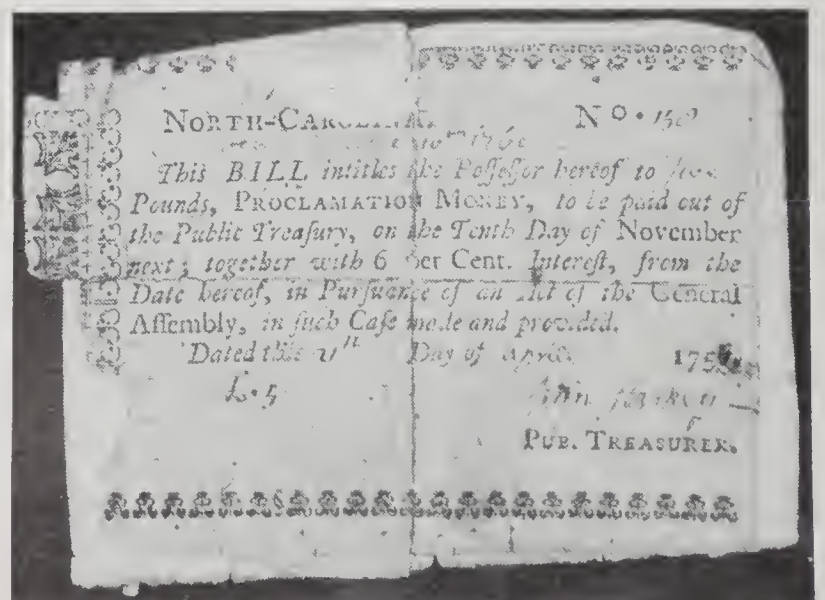 NORTH-CAROLINA. No. 
This BILL intitles the Poſſeſſor hereof to
Pounds, PROCLAMATION MONEY, to be paid out of
the Public Treaſury, on the Tenth Day of November
next; together with 6 per Cent. Intereſt, from the
Date hereof, in Purſuance of an Act of the General
Aſſembly, in ſuch Caſe made and provided.
Dated this Day of April 175
L. 5
PUB. TREASURER.